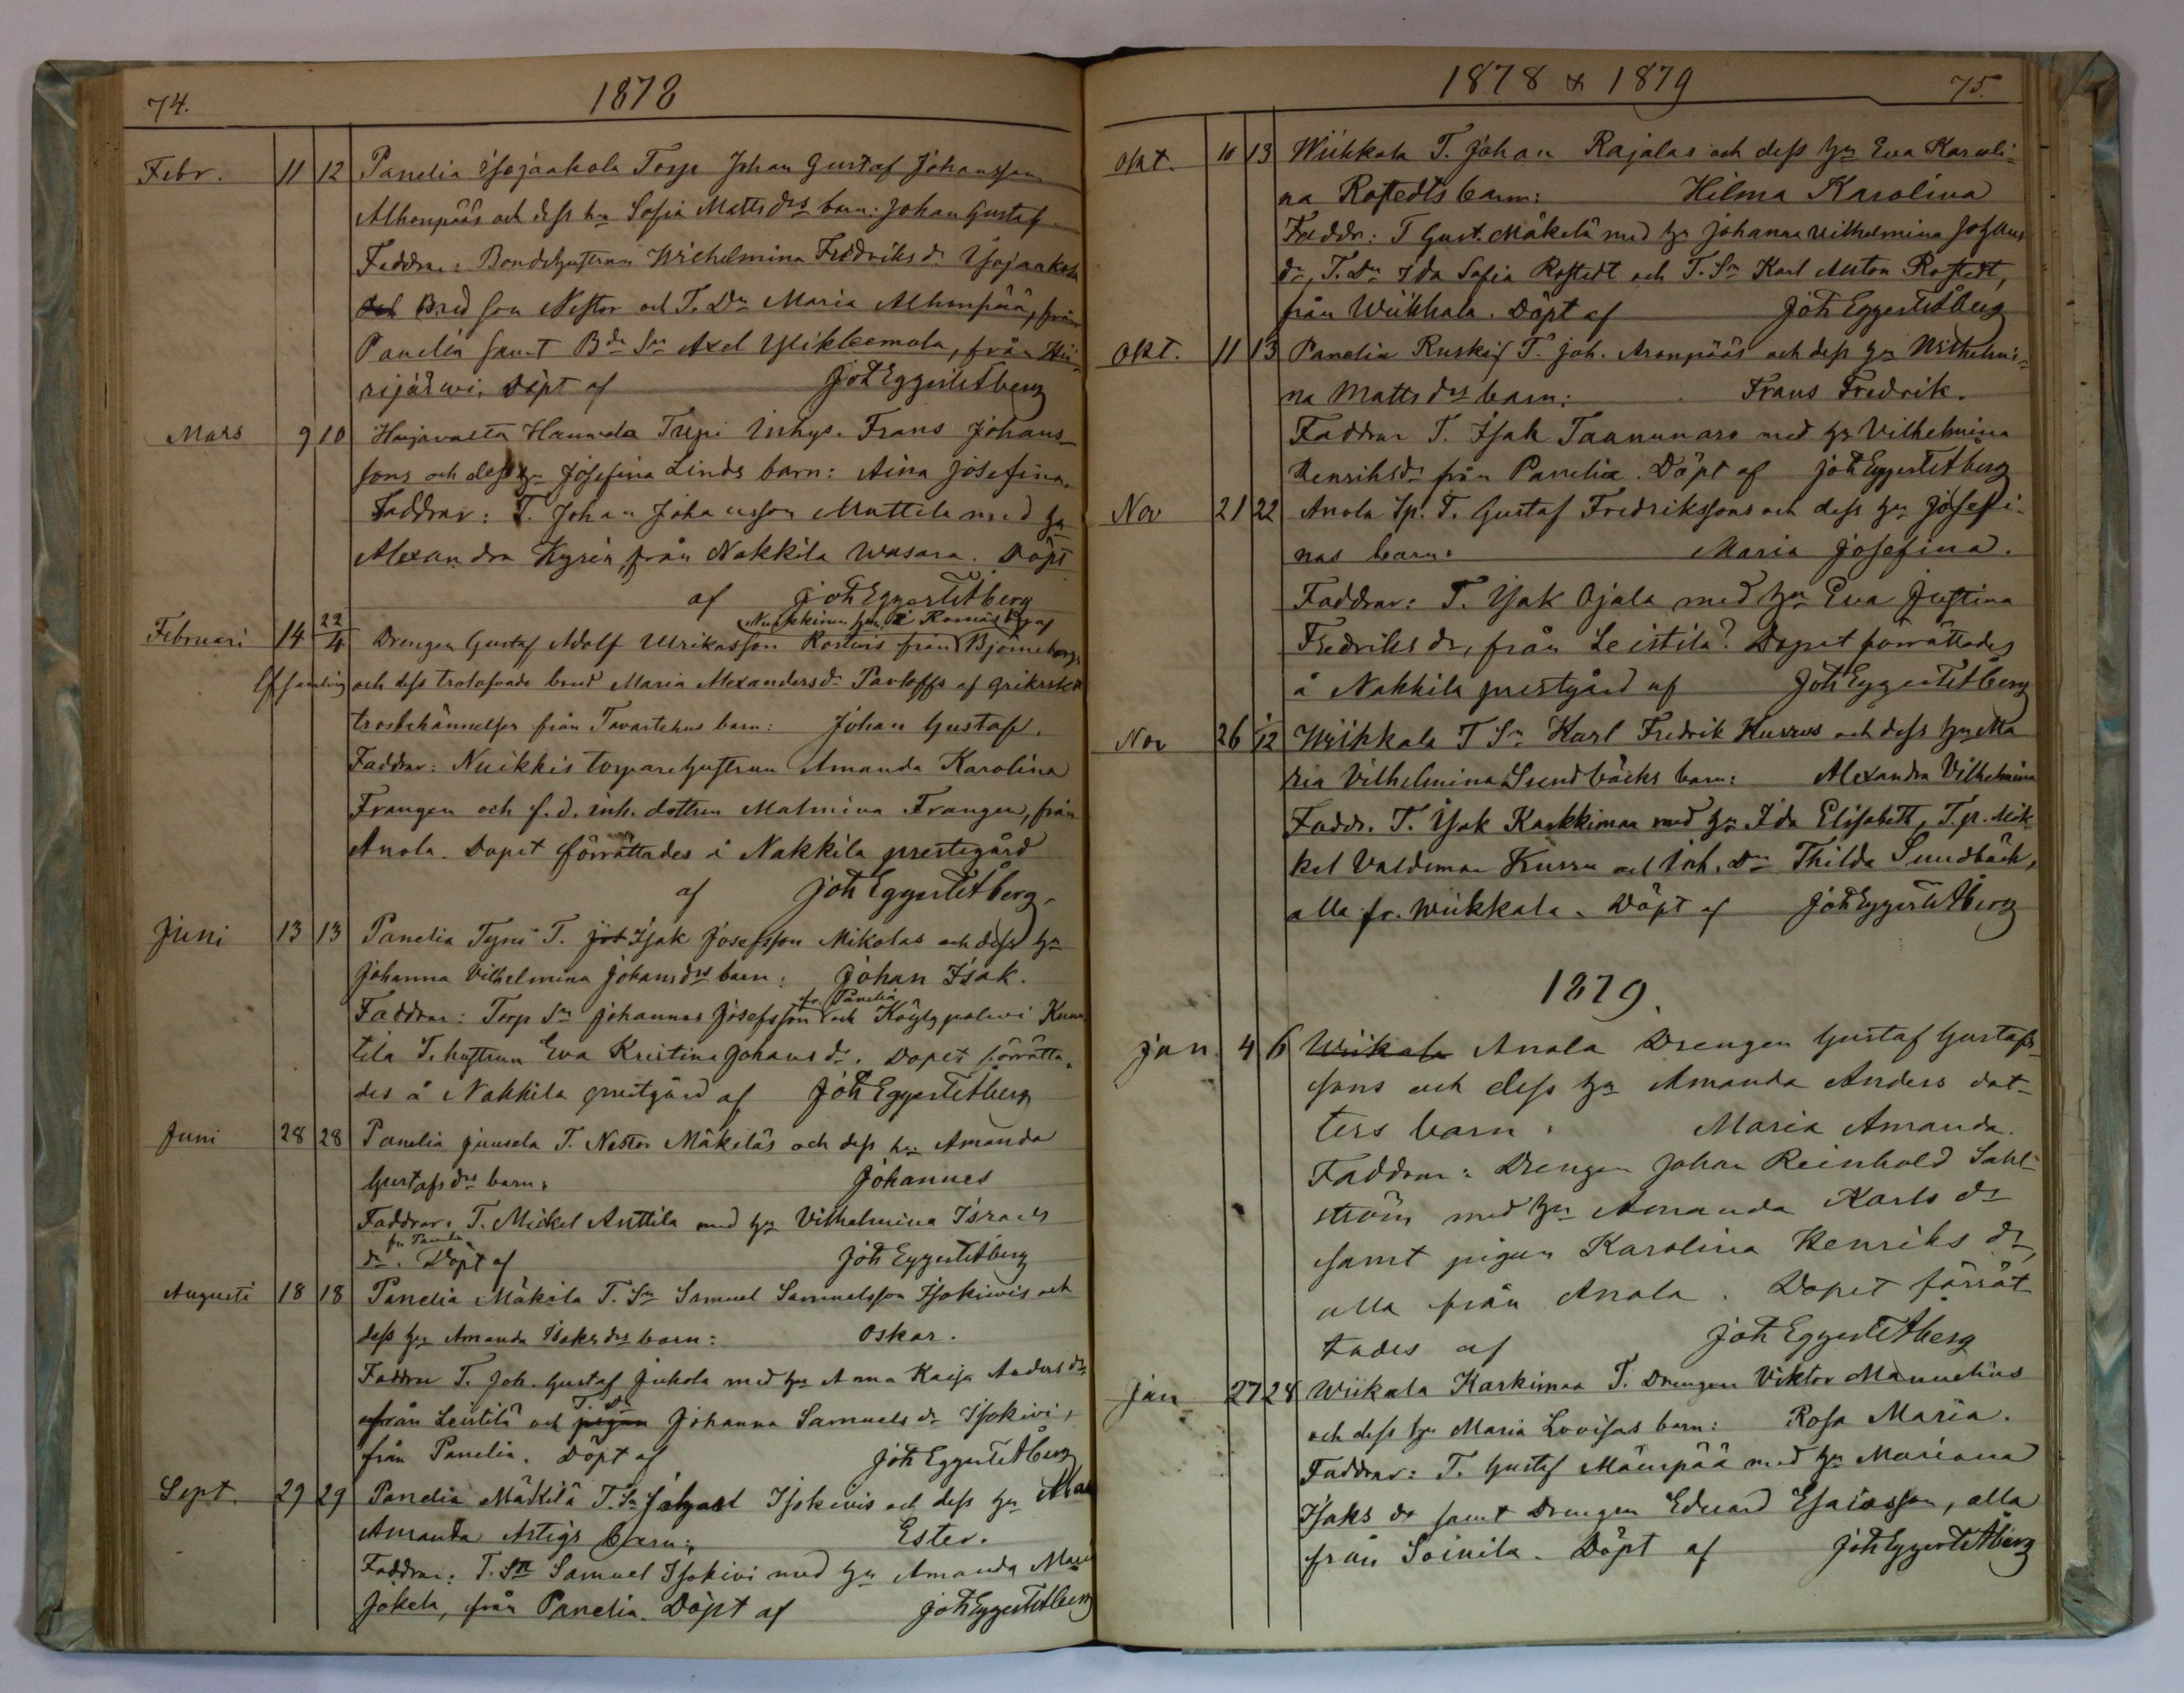 74.
1878
Febr. 11 12 Panelia Isojaakola Torp Johan Gustaf Johansson
Alhonpääs och dess hu Sofia Matts drs barn: Johan Gustaf.
Faddrar: Bondehustrun Wilhelmina Fredriks dr Isojaakola
Bond son Nestor och T. Dn Maria Alhonpää, från
Panelia samt Bde Sn Axel Ylikleemola, från
Döpt af Joh Eggert Åberg
Mars 9 10 Harjavalta Tupi Inhys. Frans Johans-
sons och dess hu Josefina Linds barn: Aina Josefina.
Faddrar: T. Johan Johansson Mattila med hu
Alexandra från Nakkila Wasara. Döpt
af Joh Eggert Åberg
Februari 14 22/4 Drengen Gustaf Adolf Ulrikasson från Björneborgs
och dess trolofvade brud Maria Alexanders dr Pavloffs af grekiska
trosbekännelsen från Tavastehus barn: Johan Gustaf.
Faddrar: Nuikkis torparehustrun Amanda Karolina
Frangen och f.d. inh. dottren Malmina Frangen, från
Anola. Dopet förrättades å Nakkila prestegård
af Joh Eggert Åberg.
Juni 13 13 Panelia Tyni T. Isak Josefsson Mikolas och dess hu
Johanna Vilhelmina Johans drs barn: Johan Isak.
fr. Panelia
Faddrar: Torp Sn Johannes Josefsson och Köylypolvi
tila T. hustrun Eva Kristina Johans dr. Dopet förrätta-
des å Nakkila prestgård af Joh Eggert Åberg
Juni 28 28 Panelia Juusela T. Nestor Mäkeläs och dess hu Amanda
Gustafs drs barn: Johannes
Faddrar: T. Mickel Anttila med hu Vilhelmina Israels
fr. Panelia
dr. Döpt af Joh Eggert Åberg
Augusti 18 18 Panelia Mäkilä T. Sn Samuel Samuelsson Isokivis och
dess hu Amanda Isaks drs barn: Oskar.
Faddrar T. Joh. Gustaf Jukola med hu Anna Kaisa Anders dr
T. Dn
från Leistilä och pigan Johanna Samuels dr Isokivi,
från Panelia. Döpt af Joh Eggert Åberg
Sept. 29 29 Panelia T. Sn Isokivis och dess hu
Amanda barn: Ester.
Faddrar: T. Sn Samuel Isokivi med hu Amanda
Jokela, från Panelia. Döpt af Joh Eggert Åberg
1878 & 1879
75.
Okt. 10 13 Wiikkala T. Johan Rajalas och dess hu Eva Karoli-
na Rostedts barn: Hilma Karolina
Faddr: T Gust. Mäkelä med hu Johanna Vilhelmina Johans
dr, T. Dn Ida Sofia Rostedt och T. Sn Karl Anton Rostedt,
från Wiikkala. Döpt af Joh Eggert Åberg
Okt. 11 13 Panelia T. Joh. Aronpääs och dess hu Wilhelmi-
na Matts drs barn: Frans Fredrik.
Faddrar T. Isak med hu Vilhelmina
Henriks dr från Panelia. Döpt af Joh Eggert Åberg
Nov 21 22 Anola Sp. T. Gustaf Fredrikssons och dess hu Josefi-
nas barn: Maria Josefina.
Faddrar: T. Isak Ojala med hu Eva Justina
Fredriks dr, från Leistilä. Dopet förrättades
å Nakkila prestgård af Joh Eggert Åberg
Nov 26 1/12 Wiikkala T Sn Karl Fredrik Kurrus och dess hu Ma
ria Vilhelmina Sundbäcks barn: Alexandra Vilhelmina
Faddr. T. Isak Karkkimaa med hu Ida Elisabeth, T.p. Mik
kel Valdemar Kurru och inh. Dn Thilda Sundbäck,
alla fr. Wiikkala. Döpt af Joh Eggert Åberg
1879.
Jan. 4 6 Wiikala Anola Drengen Gustaf Gustafs-
sons och dess hu Amanda Anders dot-
ters barn: Maria Amanda.
Faddrar: Drengen Johan Reinhold Sahl-
ström med hu Amanda Karls dr
samt pigan Karolina Henriks dr,
alla från Anola. Dopet förrät
tades af Joh Eggert Åberg
Jan 27 28 Wiikala Karkimaa T. Drengen Viktor
och dess hu Maria Lovisas barn: Rosa Maria.
Faddrar: T. Gustaf Mäenpää med hu Mariana
Isaks dr samt Drengen Eduard Esaiasson, alla
från Soinila. Döpt af Joh Eggert Åberg